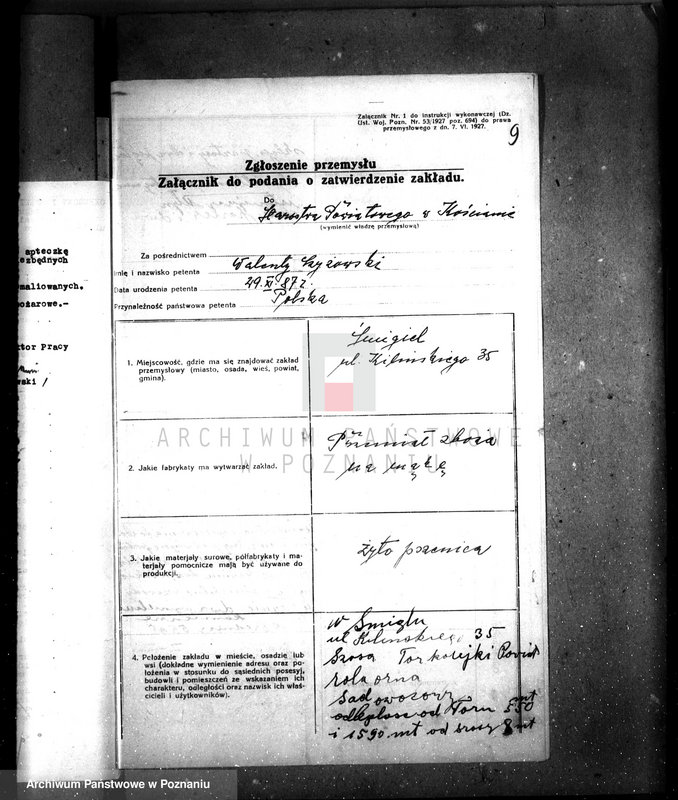 Załącznik Nr. 1 do instrukcji wykonawczej (Dz.
Ust. Woj. Pozn. Nr. 53/1927 poz. 694) do prawa
przemysłowego z dn. 7. VI. 1927.
9
Zgłoszenie przemysłu
Załącznik do podania o zatwierdzenie zakładu.
Do
Starostwa Powiatowego w Kościanie
(wymienić władzę przemysłową)
Za pośrednictwem
Imię i nazwisko petenta Walenty
Data urodzenia petenta 29. XI. 87 r.
Przynależność państwowa petenta Polska
1. Miejscowość, gdzie ma się znajdować zakład
przemysłowy (miasto, osada, wieś, powiat,
gmina).
Śmigiel
ul. Kilińskiego 35
2. Jakie fabrykaty ma wytwarzać zakład.
Przemiał zboża
na mąkę
3. Jakie materjały surowe, półfabrykaty i ma-
terjały pomocnicze mają być używane do
produkcji.
żyto pszenica
4. Położenie zakładu w mieście, osadzie lub
wsi (dokładne wymienienie adresu oraz po-
łożenia w stosunku do sąsiednich posesyj,
budowli i pomieszczeń ze wskazaniem ich
charakteru, odległości oraz nazwisk ich właś-
cicieli i użytkowników).
w Śmiglu
ul Kilinskiego 35
Szosa Tor kolejki Powiat
rola orna
Sad owocowy
od Toru 550 mt
i 1590 mt od szosy 8 mt
apteczkę
ezbędnych
maliowanych.
pożarowe.-
ktor Pracy
wski /
ARCHIWUM PAŃSTWOWE
W POZNANIU
Archiwum Państwowe w Poznaniu